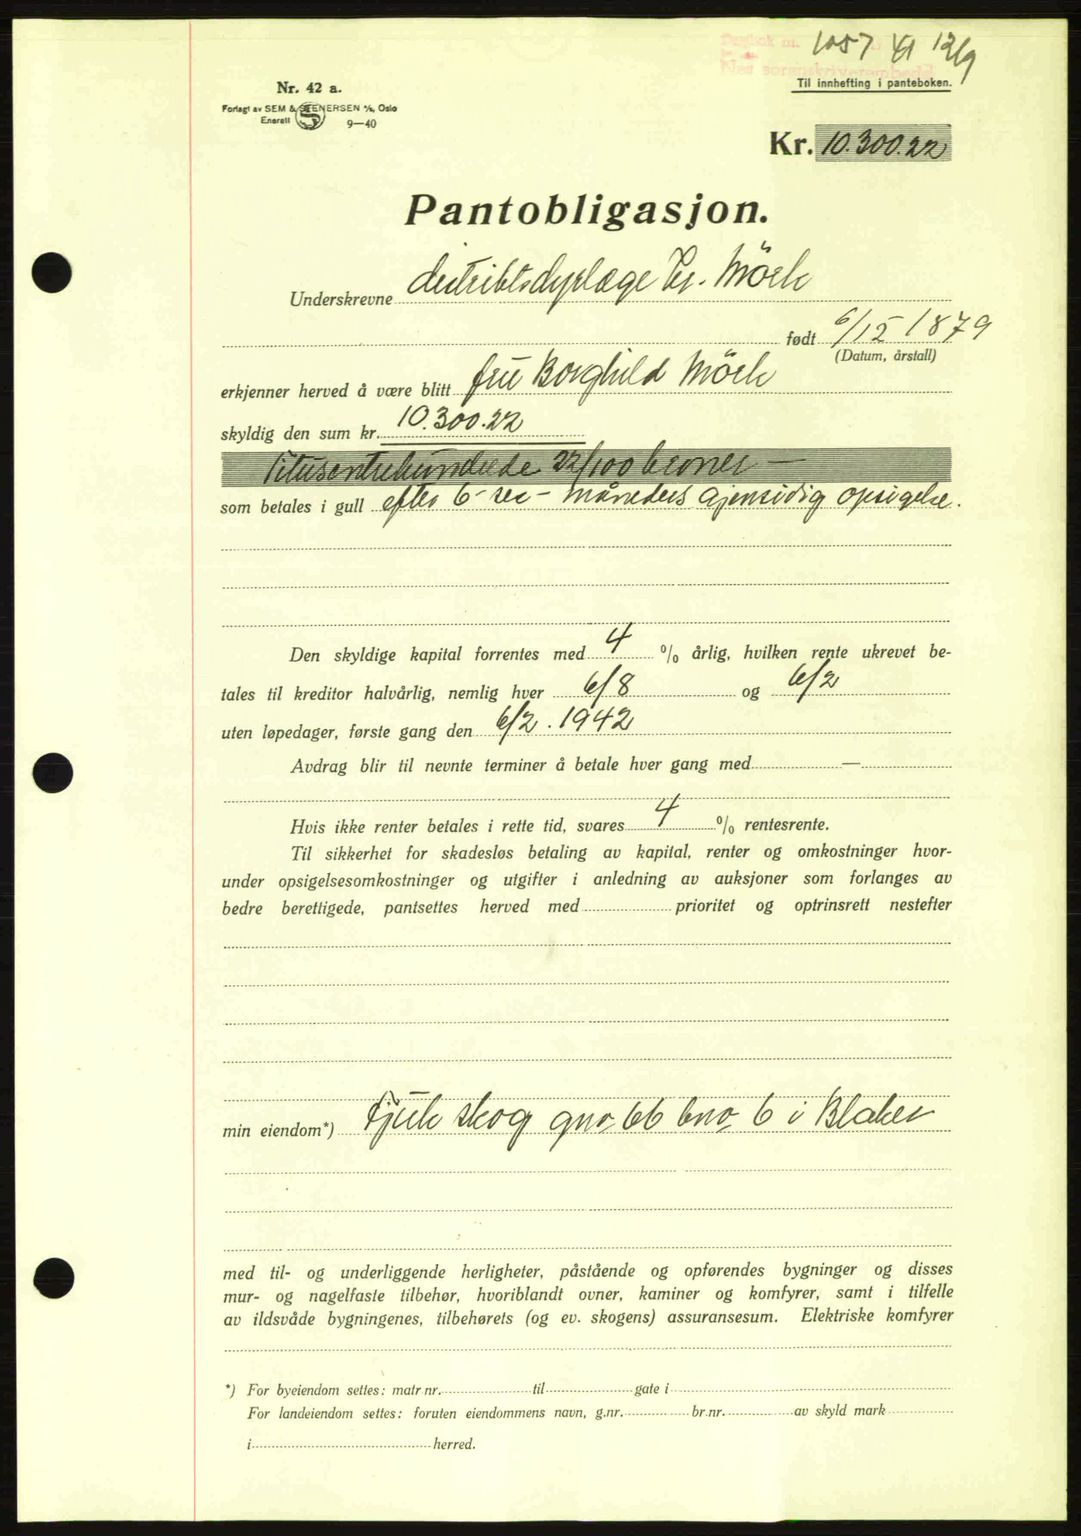 Dagbok nr. 1057 41 12/9
Nes sorenskriverembede
Til innhefting i panteboken.
Nr. 42 a.
Forlagt av SEM & STENERSEN A/S, Oslo
Enerett S 9—40
Kr. 10.300.22
Pantobligasjon.
Underskrevne distriktsdyrlæge Mörk
født 6/12 1879
(Datum, årstall)
erkjenner herved å være blitt fru Borghild Mörk
skyldig den sum kr. 10.300.22
Titusentrehundrede 22/100 kroner —
som betales i gull efter 6- sex - måneders gjensidig opsigelse.
Den skyldige kapital forrentes med 4 % årlig, hvilken rente ukrevet be-
tales til kreditor halvårlig, nemlig hver 6/8 og 6/2
uten løpedager, første gang den 6/2. 1942
Avdrag blir til nevnte terminer å betale hver gang med —
Hvis ikke renter betales i rette tid, svares 4 % rentesrente.
Til sikkerhet for skadesløs betaling av kapital, renter og omkostninger hvor-
under opsigelsesomkostninger og utgifter i anledning av auksjoner som forlanges av
bedre berettigede, pantsettes herved med prioritet og optrinsrett nestefter
min eiendom*) skog gno 66 bno 6 i Blaker
med til- og underliggende herligheter, påstående og opførendes bygninger og disses
mur- og nagelfaste tilbehør, hvoriblandt ovner, kaminer og komfyrer, samt i tilfelle
av ildsvåde bygningenes, tilbehørets (og ev. skogens) assuransesum. Elektriske komfyrer
*) For byeiendom settes: matr nr. til gate i
For landeiendom settes: foruten eiendommens navn, g.nr. br.nr. av skyld mark
i herred.